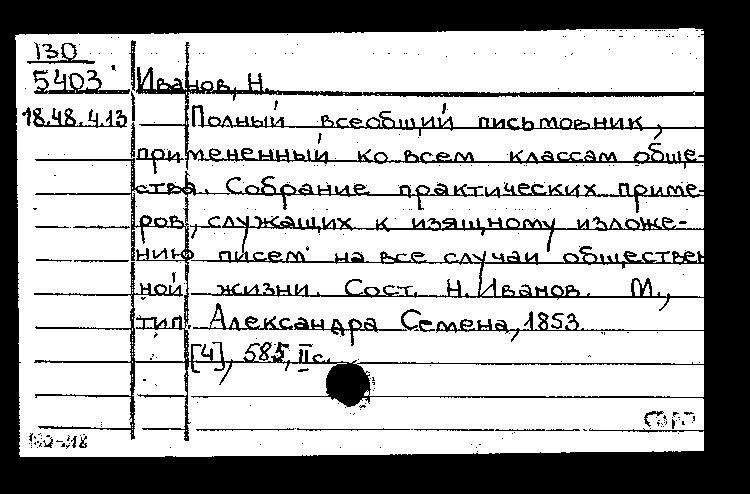 130
5403
Иванов, Н.
18.48.4.13
Полный всеобщий письмовник,
примененный ко всем классам обще-
ства. Собрание практических приме-
ров, служащих к изящному изложе-
нию писем на все случаи обществен
ной жизни. Сост. Н. Иванов. М.,
тип. Александра Семена, 1853.
[4], 585, II с.